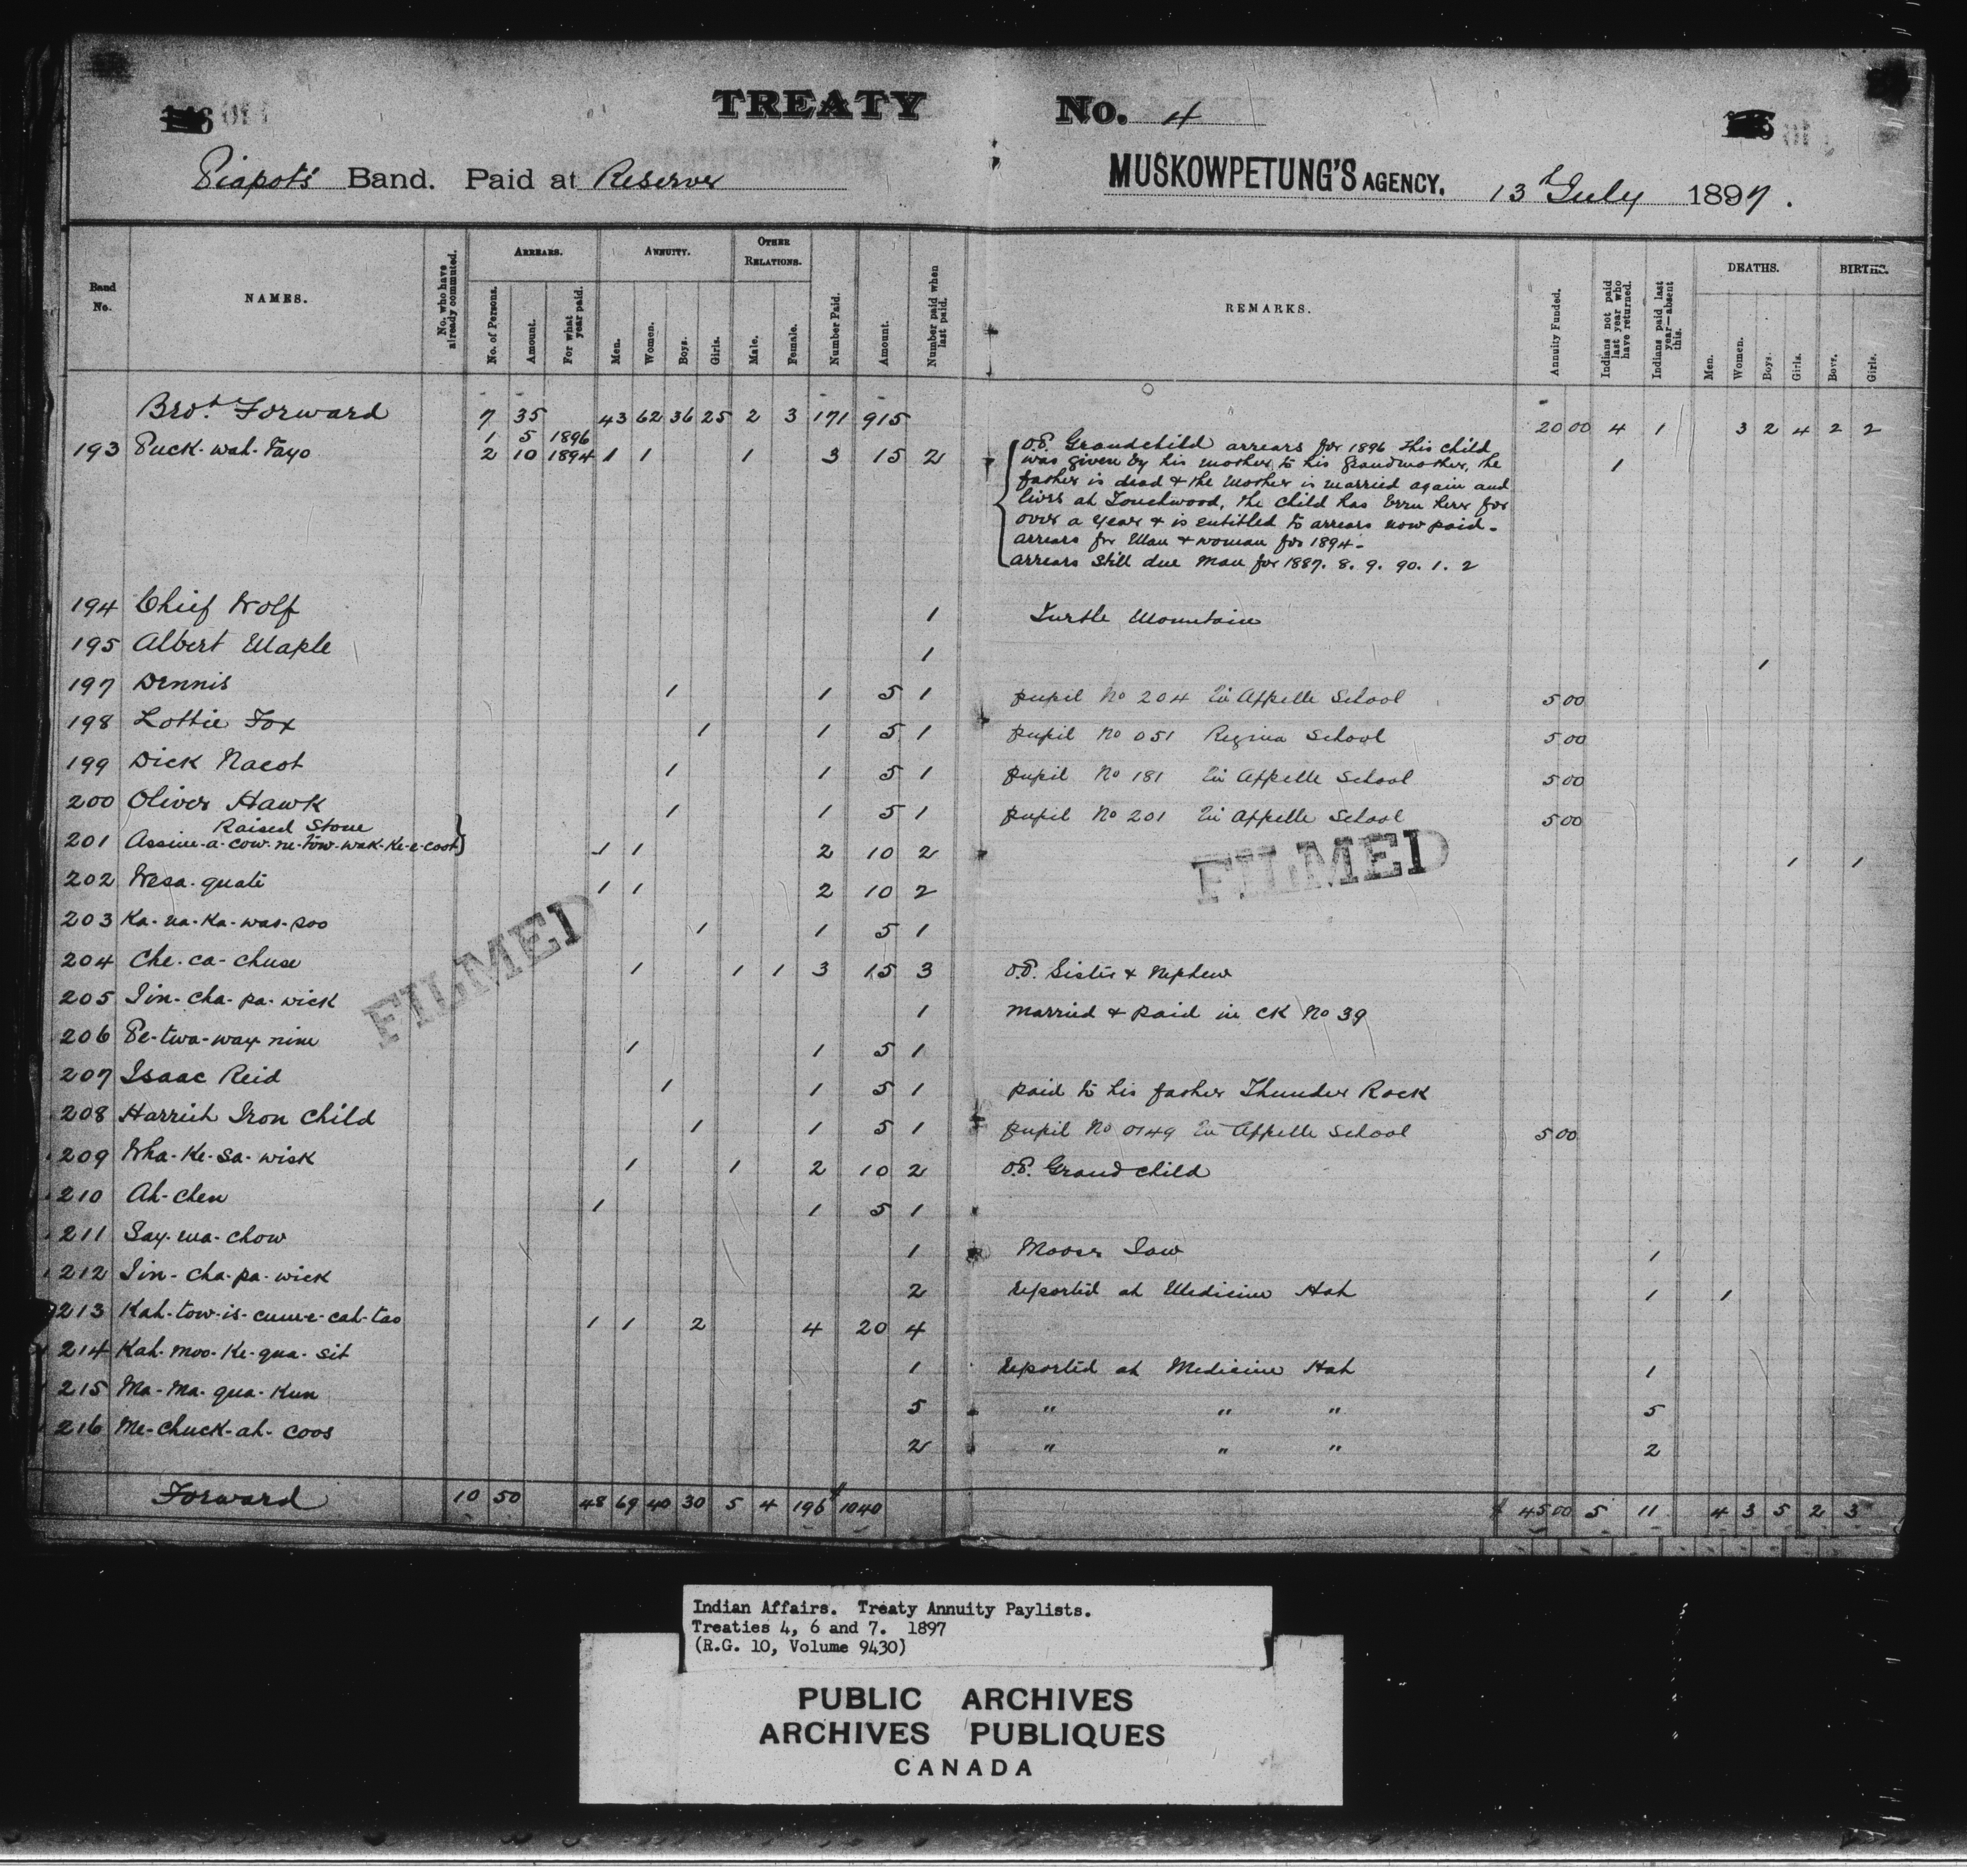 TREATY No. 4
Piapot's Band. Paid at Reserve MUSKOWPETUNG'S AGENCY. 13th July 1897.
Band No. NAMES. No. who have already commuted. ARREARS. No. of Persons. Amount. For what year paid. ANNUITY. Men. Women. Boys. Girls. OTHER RELATIONS. Male. Female. Number Paid. Amount. Number paid when last paid. REMARKS. Annuity Funded. Indians not paid last year who have returned. Indians paid last year—absent this. DEATHS. Men. Women. Boys. Girls. BIRTHS. Boys. Girls.
Brot. Forward 7 35 43 62 36 25 2 3 171 915 20 00 4 1 3 2 4 2 2
1 5 1896
193 Puck-wah-Fayo 2 10 1894 1 1 1 3 15 2 O.R. Grandchild arrears for 1896 This child 1
was given by his mother to his Grandmother, the
father is dead & the Mother is married again and
lives at Touchwood, the child has been here for
over a year & is entitled to arrears now paid.
arrears for Man & woman for 1894.
arrears still due Man for 1887. 8. 9. 90. 1. 2
194 Chief Wolf 1 Turtle Mountain
195 Albert Maple 1 1
197 Dennis 1 1 5 1 pupil No 204 Qu'Appelle School 5 00
198 Lottie Fox 1 1 5 1 pupil No 051 Regina School 5 00
199 Dick Nacot 1 1 5 1 pupil No 181 Qu'Appelle School 5 00
200 Oliver Hawk 1 1 5 1 pupil No 201 Qu'Appelle School 5 00
Raised Stone
201 Assine-a-cow-ne-tow-wak-ke-e-coot 1 1 2 10 2 1 1
FILMED
202 Wesa-quate 1 1 2 10 2
203 Ka-na-ka-was-soo 1 1 5 1
FILMED
204 Che-ca-chuse 1 1 1 3 15 3 O.R. Sister & Nephew
205 Jin-cha-pa-wick 1 married & paid in CK No 39
206 Pe-twa-way-nine 1 1 5 1
207 Isaac Reid 1 1 5 1 paid to his father Thunder Rock
208 Harriet Iron Child 1 1 5 1 pupil No 0149 Qu'Appelle School 5 00
209 Wha-ke-sa-wisk 1 1 2 10 2 O.R. Grandchild
210 Ah-chen 1 1 5 1
211 Say-wa-chow 1 Moose Jaw 1
212 Jin-cha-pa-wick 2 reported at Medicine Hat 1 1
213 Kah-tow-is-cum-e-cah-tao 1 1 2 4 20 4
214 Kah-moo-ke-qua-sit 1 reported at Medicine Hat 1
215 Ma-Ma-qua-Kun 5 " " " 5
216 Me-chuck-ah-coos 2 " " " 2
Forward 10 50 48 69 40 30 5 4 196 $1040 $ 45 00 5 11 4 3 5 2 3
Indian Affairs. Treaty Annuity Paylists.
Treaties 4, 6 and 7. 1897
(R.G. 10, Volume 9430)
PUBLIC ARCHIVES
ARCHIVES PUBLIQUES
CANADA